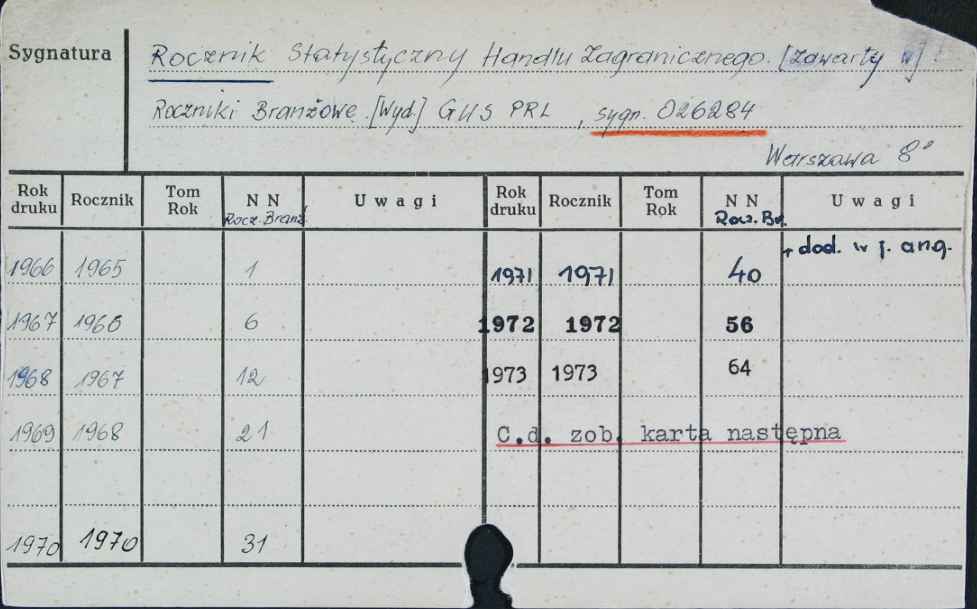 Sygnatura
Rocznik Statystyczny Handlu Zagranicznego. [zawarty w]:
Roczniki Branżowe. [Wyd.] GUS PRL, sygn. 026284
Warszawa 8°
Rok druku Rocznik Tom Rok N N Rocz. Branż. Uwagi Rok druku Rocznik Tom Rok N N Rocz. Br. Uwagi
1966 1965 1 1971 1971 40 + dod. w j. ang.
1967 1966 6 1972 1972 56
1968 1967 12 1973 1973 64
1969 1968 21 C.d. zob. karta następna
1970 1970 31